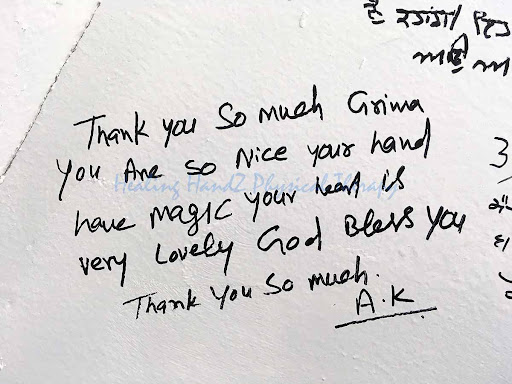 Thank you so much Grima
You Are so Nice your hand
Healing HandZ Physical Therapy
have magic your heart is
very Lovely God Bless you
Thank you so much.
A.K